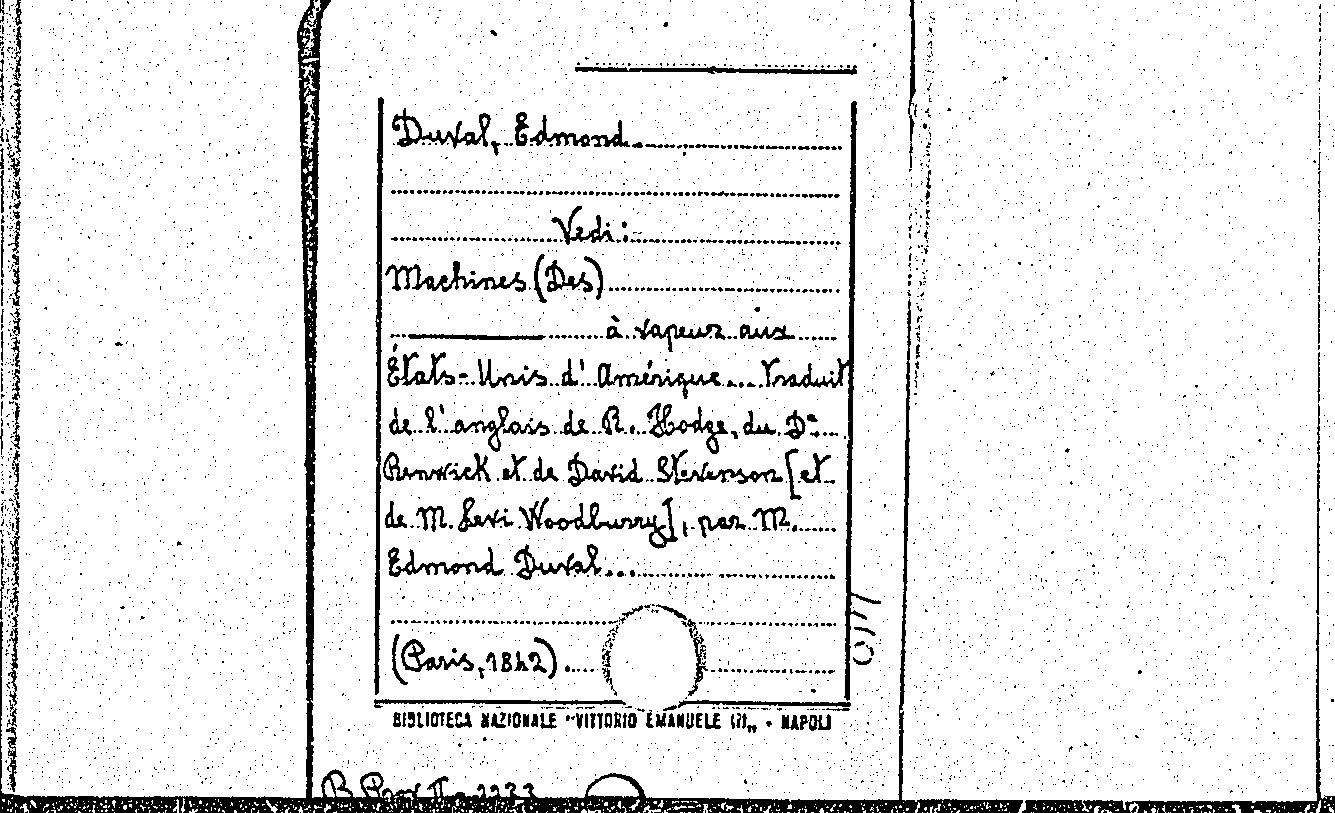 Duval, Edmond.
Vedi:
Machines (Des)
à vapeur aux
États-Unis d'Amérique... Traduit
de l'anglais de R. Hodge, du Dr.
Renwick et de David Stevenson [et
de M. Levi Woodburry], par M.
Edmond Duval...
(Paris, 1842).
BIBLIOTECA NAZIONALE "VITTORIO EMANUELE III„ - NAPOLI